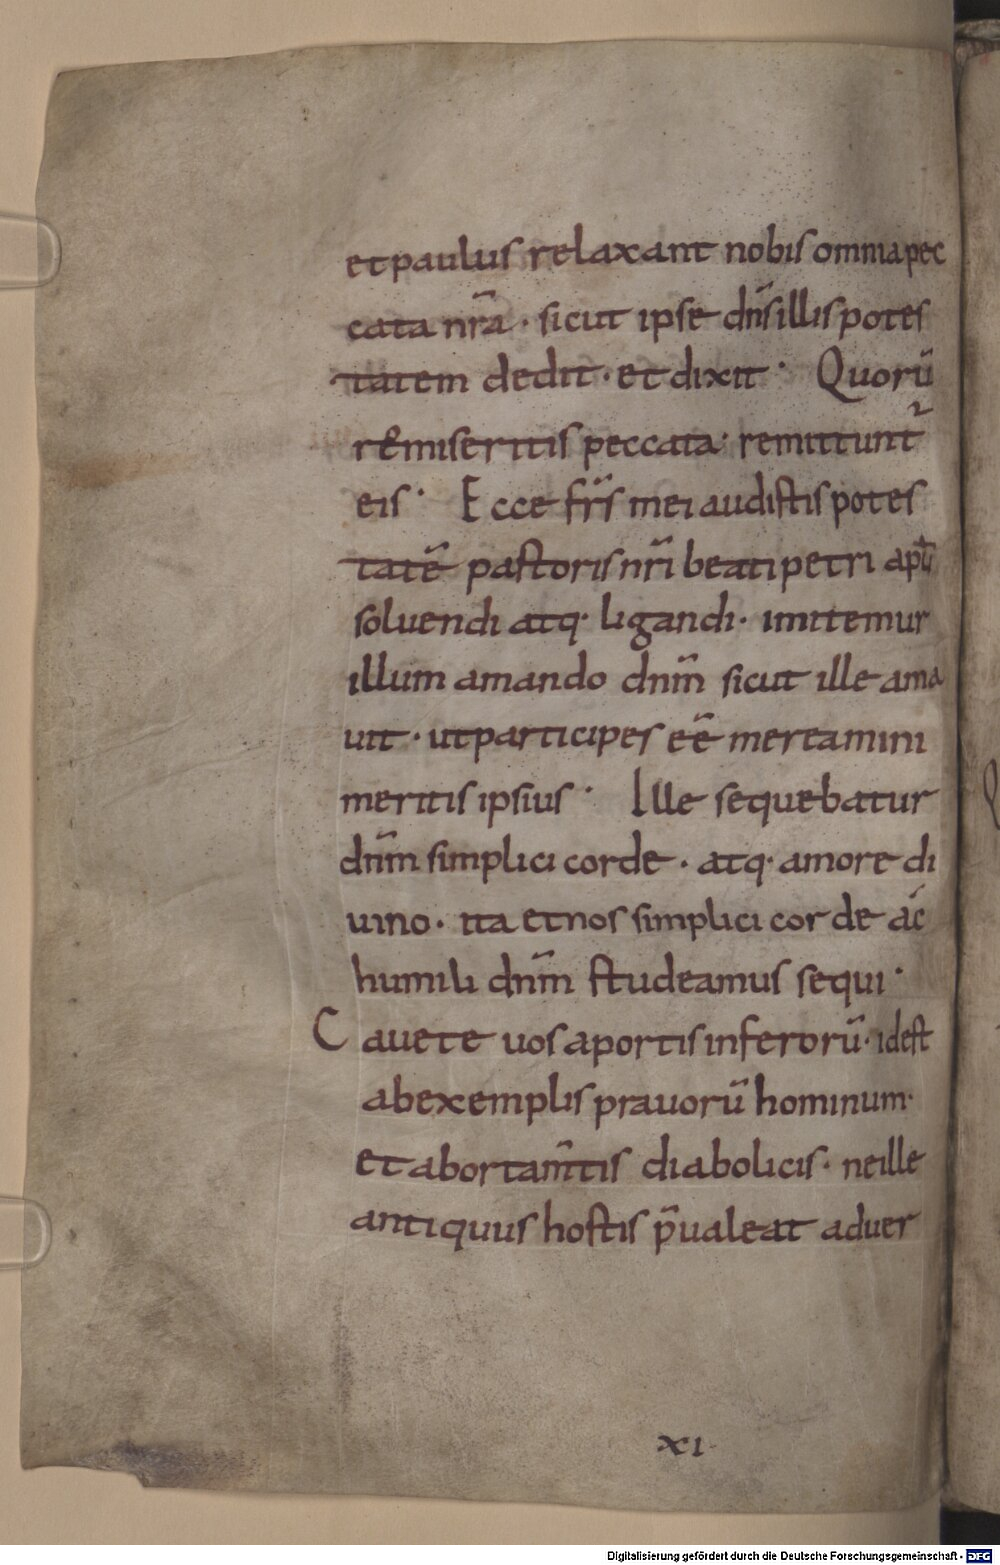 et paulus relaxant nobis omnia pec
cata nr̄a · sicut ipse dn̄s illis potes
tatem dedit · et dixit · Quorū
remiseritis peccata · remittunt᷑
eis · Ecce fr̄s mei audistis potes
tatē pastoris nr̄i beati petri apłi
soluendi atq· ligandi · imitemur
illum amando dn̄m sicut ille ama
uit · ut participes eē mereamini
meritis ipsius · Ille sequebatur
dn̄m simplici corde · atq· amore di
uino · ita et nos simplici corde ac
humili dn̄m studeamus sequi ·
Cauete uos a portis inferorū · id est
ab exemplis prauorū hominum ·
et ab ortam̄tis diabolicis · ne ille
antiquus hostis p̄ualeat aduer
XI
Digitalisierung gefördert durch die Deutsche Forschungsgemeinschaft - DFG